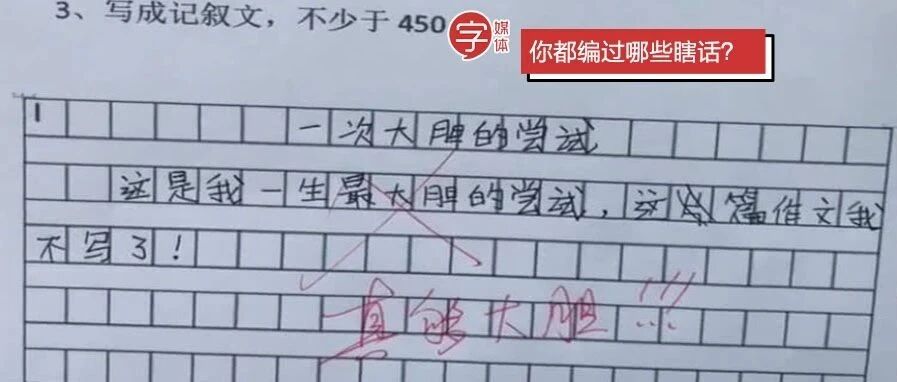 3、写成记叙文，不少于 450
字媒体
你都编过哪些瞎话？
1 一次大胆的尝试
这是我一生最大胆的尝试，这篇作文我
不写了！
真能大胆!!!